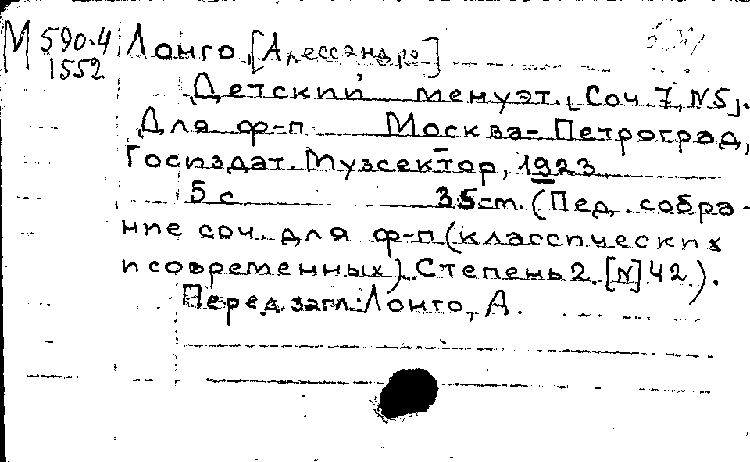 М 590.4
1552
Лонго, [Алессандро]
Детский менуэт. [Соч 7, N5].
Для ф-п. Москва-Петроград,
Госиздат. Музсектор, 1923
5 с 35 т. (Пед. собра-
ние соч. для ф-п (классических
и современных). Степень 2. [N] 42.).
Перед загл: Лонго, А.